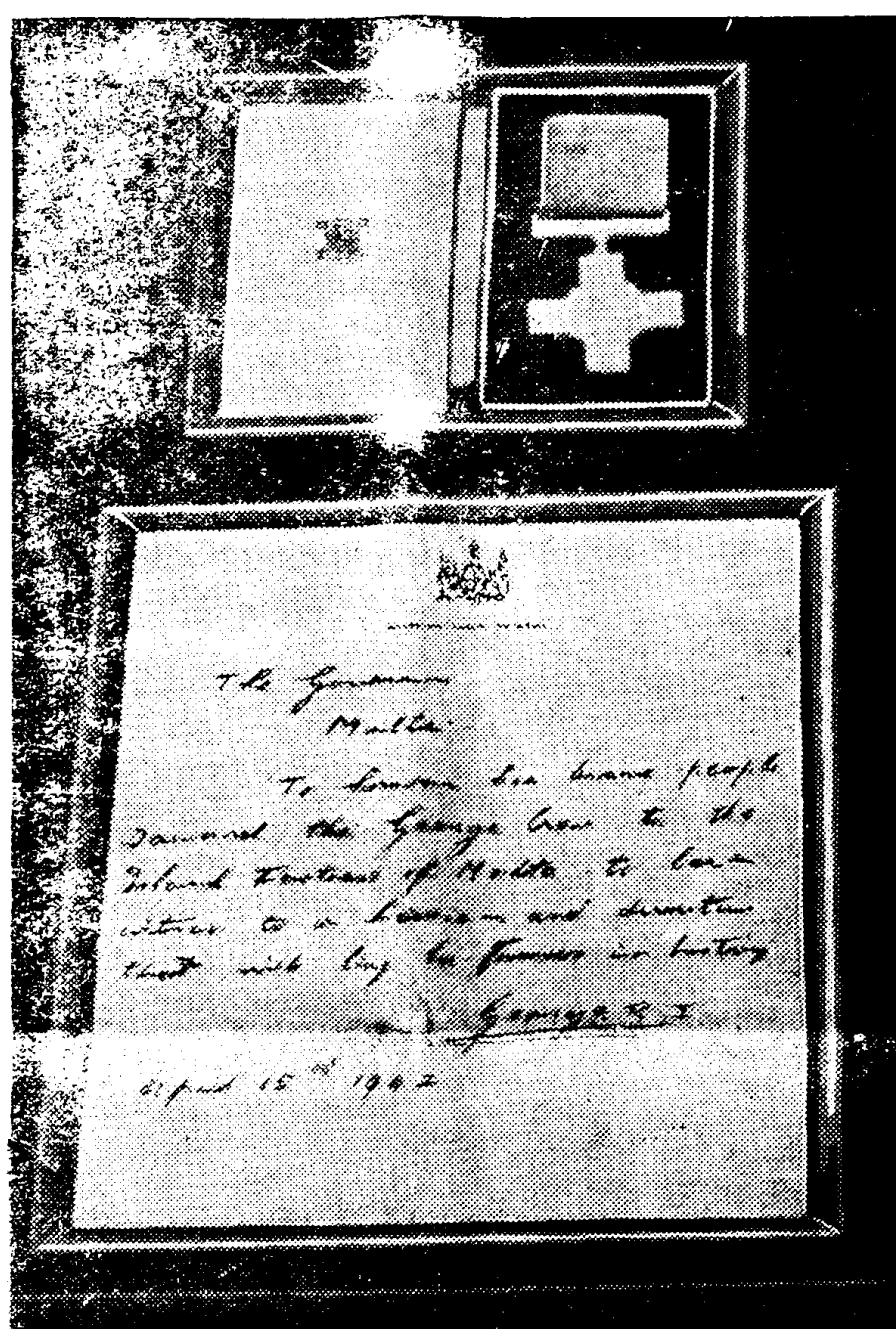 The Governor
Malta.
To honour her brave people
I award the George Cross to the
Island Fortress of Malta to bear
witness to a heroism and devotion
that will long be famous in history
George R. I.
April 15th 1942